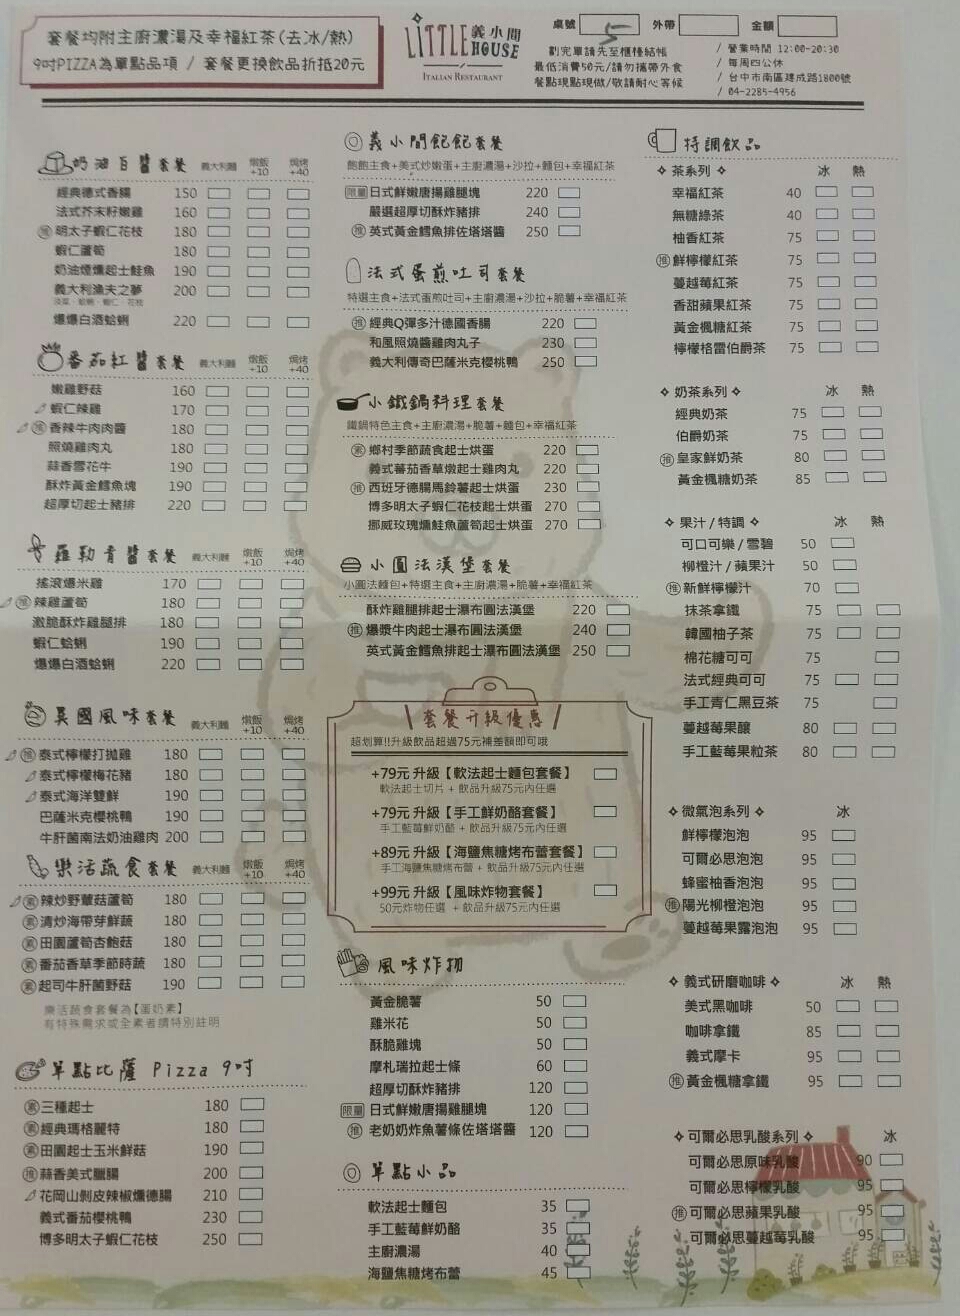 套餐均附主廚濃湯及幸福紅茶(去冰/熱)
9吋PIZZA為單點品項 / 套餐更換飲品折抵20元
LiTTLE HOUSE 義小間
ITALIAN RESTAURANT
桌號 5 外帶 金額
劃完單請先至櫃檯結帳
最低消費50元/請勿攜帶外食
餐點現點現做/敬請耐心等候
/ 營業時間 12:00-20:30
/ 每周四公休
/ 台中市南區建成路1800號
/ 04-2285-4956
奶油白醬套餐 義大利麵 燉飯+10 焗烤+40
經典德式香腸 150
法式芥末籽嫩雞 160
推 明太子蝦仁花枝 180
蝦仁蘆筍 180
奶油煙燻起士鮭魚 190
義大利漁夫之夢 200
爆爆白酒蛤蜊 220
番茄紅醬套餐 義大利麵 燉飯+10 焗烤+40
嫩雞野菇 160
蝦仁辣雞 170
推 香辣牛肉肉醬 180
照燒雞肉丸 180
蒜香雪花牛 190
酥炸黃金鱈魚塊 190
超厚切起士豬排 220
羅勒青醬套餐 義大利麵 燉飯+10 焗烤+40
搖滾爆米雞 170
推 辣雞蘆筍 180
激脆酥炸雞腿排 180
蝦仁蛤蜊 190
爆爆白酒蛤蜊 220
異國風味套餐 義大利麵 燉飯+10 焗烤+40
推 泰式檸檬打拋雞 180
泰式檸檬梅花豬 180
泰式海洋雙鮮 190
巴薩米克櫻桃鴨 190
牛肝菌南法奶油雞肉 200
樂活蔬食套餐 義大利麵 燉飯+10 焗烤+40
素 辣炒野蕈菇蘆筍 180
素 清炒海帶芽鮮蔬 180
素 田園蘆筍杏鮑菇 180
素 番茄香草季節時蔬 180
素 起司牛肝菌野菇 190
樂活蔬食套餐為【蛋奶素】
有特殊需求或全素者請特別註明
單點比薩 Pizza 9吋
素 三種起士 180
素 經典瑪格麗特 180
素 田園起士玉米鮮菇 190
推 蒜香美式臘腸 200
花岡山剝皮辣椒燻德腸 210
義式番茄櫻桃鴨 230
博多明太子蝦仁花枝 250
義小間飽飽套餐
飽飽主食+美式炒嫩蛋+主廚濃湯+沙拉+麵包+幸福紅茶
限量 日式鮮嫩唐揚雞腿塊 220
嚴選超厚切酥炸豬排 240
推 英式黃金鱈魚排佐塔塔醬 250
法式蛋煎吐司套餐
特選主食+法式蛋煎吐司+主廚濃湯+沙拉+脆薯+幸福紅茶
推 經典Q彈多汁德國香腸 220
和風照燒醬雞肉丸子 230
義大利傳奇巴薩米克櫻桃鴨 250
小鐵鍋料理套餐
鐵鍋特色主食+主廚濃湯+脆薯+麵包+幸福紅茶
素 鄉村季節蔬食起士烘蛋 220
義式蕃茄香草燉起士雞肉丸 220
推 西班牙德腸馬鈴薯起士烘蛋 230
博多明太子蝦仁花枝起士烘蛋 270
挪威玫瑰燻鮭魚蘆筍起士烘蛋 270
小圓法漢堡套餐
小圓法麵包+特選主食+主廚濃湯+脆薯+幸福紅茶
酥炸雞腿排起士瀑布圓法漢堡 220
推 爆漿牛肉起士瀑布圓法漢堡 240
英式黃金鱈魚排起士瀑布圓法漢堡 250
套餐升級優惠
超划算!!升級飲品超過75元補差額即可哦
+79元 升級【軟法起士麵包套餐】
軟法起士切片 + 飲品升級75元內任選
+79元 升級【手工鮮奶酪套餐】
手工藍莓鮮奶酪 + 飲品升級75元內任選
+89元 升級【海鹽焦糖烤布蕾套餐】
手工海鹽焦糖烤布蕾 + 飲品升級75元內任選
+99元 升級【風味炸物套餐】
50元炸物任選 + 飲品升級75元內任選
風味炸物
黃金脆薯 50
雞米花 50
酥脆雞塊 50
摩札瑞拉起士條 60
超厚切酥炸豬排 120
限量 日式鮮嫩唐揚雞腿塊 120
推 老奶奶炸魚薯條佐塔塔醬 120
單點小品
軟法起士麵包 35
手工藍莓鮮奶酪 35
主廚濃湯 40
海鹽焦糖烤布蕾 45
特調飲品
✧ 茶系列 ✧ 冰 熱
幸福紅茶 40
無糖綠茶 40
柚香紅茶 75
推 鮮檸檬紅茶 75
蔓越莓紅茶 75
香甜蘋果紅茶 75
黃金楓糖紅茶 75
檸檬格雷伯爵茶 75
✧ 奶茶系列 ✧ 冰 熱
經典奶茶 75
伯爵奶茶 75
推 皇家鮮奶茶 80
黃金楓糖奶茶 85
✧ 果汁 / 特調 ✧ 冰 熱
可口可樂 / 雪碧 50
柳橙汁 / 蘋果汁 50
推 新鮮檸檬汁 70
抹茶拿鐵 75
韓國柚子茶 75
棉花糖可可 75
法式經典可可 75
手工青仁黑豆茶 75
蔓越莓果釀 80
手工藍莓果粒茶 80
✧ 微氣泡系列 ✧ 冰
鮮檸檬泡泡 95
可爾必思泡泡 95
蜂蜜柚香泡泡 95
推 陽光柳橙泡泡 95
蔓越莓果露泡泡 95
✧ 義式研磨咖啡 ✧ 冰 熱
美式黑咖啡 50
咖啡拿鐵 85
義式摩卡 95
推 黃金楓糖拿鐵 95
✧ 可爾必思乳酸系列 ✧ 冰
可爾必思原味乳酸 90
可爾必思檸檬乳酸 95
推 可爾必思蘋果乳酸 95
可爾必思蔓越莓乳酸 95